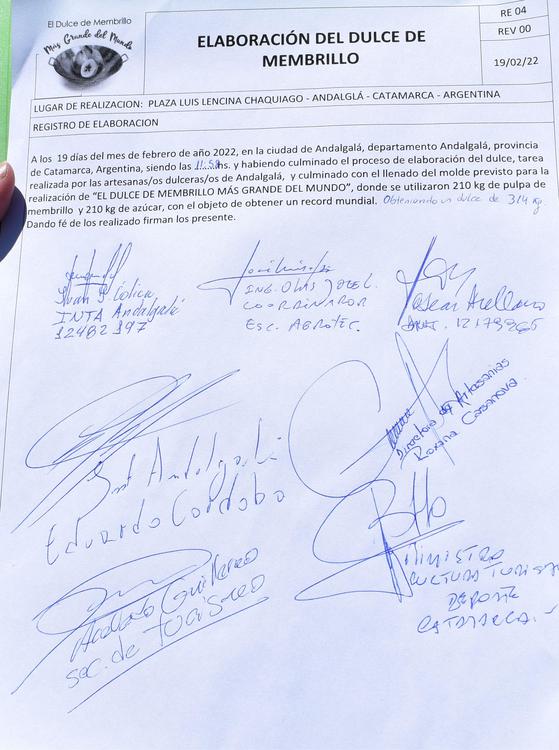 El Dulce de Membrillo
Más Grande del Mundo
ELABORACIÓN DEL DULCE DE
MEMBRILLO
RE 04
REV 00
19/02/22
LUGAR DE REALIZACION: PLAZA LUIS LENCINA CHAQUIAGO - ANDALGLÁ - CATAMARCA - ARGENTINA
REGISTRO DE ELABORACION
A los 19 días del mes de febrero de año 2022, en la ciudad de Andalgalá, departamento Andalgalá, provincia
de Catamarca, Argentina, siendo las hs. y habiendo culminado el proceso de elaboración del dulce, tarea
realizada por las artesanas/os dulceras/os de Andalgalá, y culminado con el llenado del molde previsto para la
realización de "EL DULCE DE MEMBRILLO MÁS GRANDE DEL MUNDO", donde se utilizaron 210 kg de pulpa de
membrillo y 210 kg de azúcar, con el objeto de obtener un record mundial. Obteniendo un dulce de 314 kg
Dando fé de los realizado firman los presente.
INTA Andalgalá
12482197
ING.
COORDINADOR
ESC. AGROTEC.
Arellano
12179265
Directora de Artesanías
Roxana Casanova
Int Andalgalá
Eduardo Cordoba
MINISTRO
CULTURA TURIS
DEPORTE
CATAMARCA.
Guillermo
sec. de Turismo